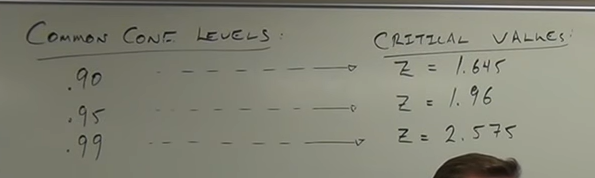 COMMON CONF. LEVELS:
CRITICAL VALUES:
.90 ----> Z = 1.645
.95 ----> Z = 1.96
.99 ----> Z = 2.575